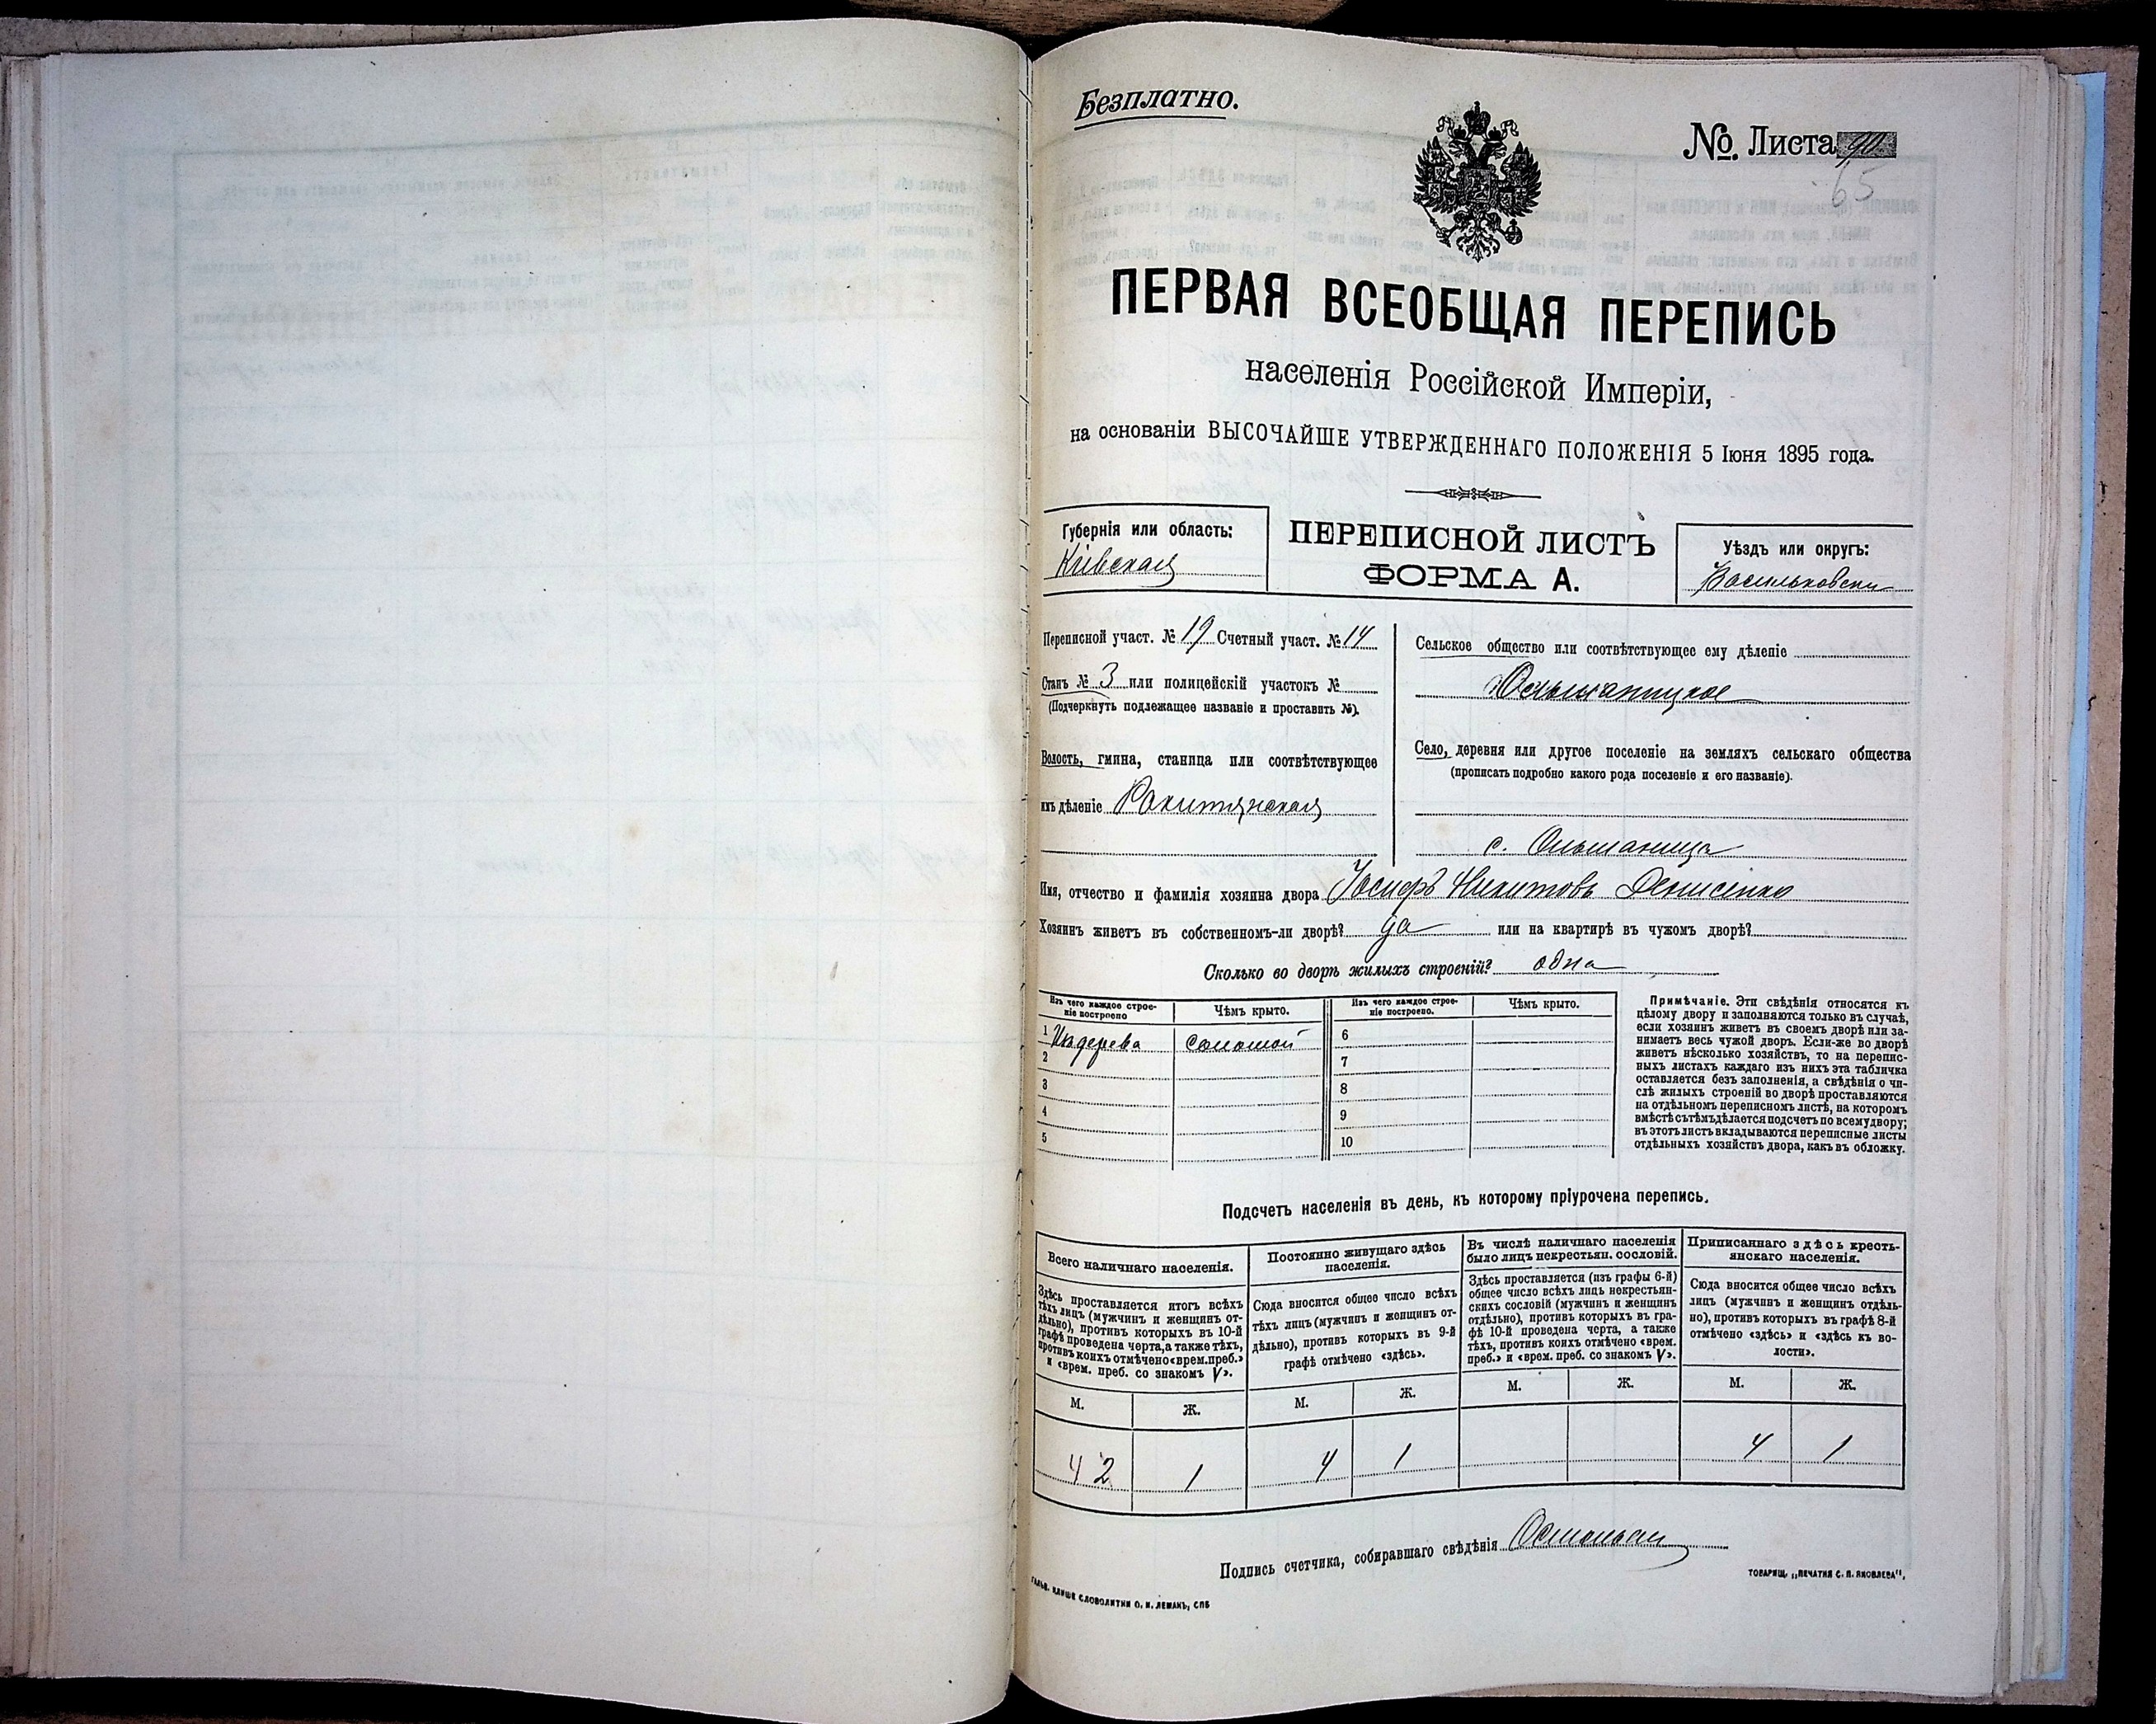 Безплатно.
№. Листа 90
65
ПЕРВАЯ ВСЕОБЩАЯ ПЕРЕПИСЬ
населенія Россійской Имперіи,
на основаніи ВЫСОЧАЙШЕ УТВЕРЖДЕННАГО ПОЛОЖЕНІЯ 5 Іюня 1895 года.
Губернія или область:
Кіевская
ПЕРЕПИСНОЙ ЛИСТЪ
ФОРМА А.
Уѣздъ или округъ:
Васильковски
Переписной участ. № 19 Счетный участ. № 14
Станъ № 3 или полицейскій участокъ №
(Подчеркнуть подлежащее названіе и проставить №).
Волость, гмина, станица или соотвѣтствующее
имъ дѣленіе Рокитянская
Сельское общество или соотвѣтствующее ему дѣленіе
Ольшаницкое
Село, деревня или другое поселеніе на земляхъ сельскаго общества
(прописать подробно какого рода поселеніе и его названіе).
с. Ольшаница
Имя, отчество и фамилія хозяина двора Іосифъ Никитовъ Денисенко
Хозяинъ живетъ въ собственномъ-ли дворѣ? да или на квартирѣ въ чужомъ дворѣ?
Сколько во дворѣ жилыхъ строеній? одна
Изъ чего каждое строе-
ніе построено
Чѣмъ крыто.
Изъ чего каждое строе-
ніе построено.
Чѣмъ крыто.
1 Изъ дерева соломой
2
3
4
5
6
7
8
9
10
Примѣчаніе. Эти свѣдѣнія относятся къ
цѣлому двору и заполняются только въ случаѣ,
если хозяинъ живетъ въ своемъ дворѣ или за-
нимаетъ весь чужой дворъ. Если-же во дворѣ
живетъ нѣсколько хозяйствъ, то на перепис-
ныхъ листахъ каждаго изъ нихъ эта табличка
оставляется безъ заполненія, а свѣдѣнія о чи-
слѣ жилыхъ строеній во дворѣ проставляются
на отдѣльномъ переписномъ листѣ, на которомъ
вмѣстѣ съ тѣмъ дѣлается подсчетъ по всему двору;
въ этотъ листъ вкладываются переписные листы
отдѣльныхъ хозяйствъ двора, какъ въ обложку.
Подсчетъ населенія въ день, къ которому пріурочена перепись.
Всего наличнаго населенія.
Здѣсь проставляется итогъ всѣхъ
тѣхъ лицъ (мужчинъ и женщинъ от-
дѣльно), противъ которыхъ въ 10-й
графѣ проведена черта, а также тѣхъ,
противъ коихъ отмѣчено «врем. преб.»
и «врем. преб. со знакомъ V».
Постоянно живущаго здѣсь
населенія.
Сюда вносится общее число всѣхъ
тѣхъ лицъ (мужчинъ и женщинъ от-
дѣльно), противъ которыхъ въ 9-й
графѣ отмѣчено «здѣсь».
Въ числѣ наличнаго населенія
было лицъ некрестьян. сословій.
Здѣсь проставляется (изъ графы 6-й)
общее число всѣхъ лицъ некрестьян-
скихъ сословій (мужчинъ и женщинъ
отдѣльно), противъ которыхъ въ гра-
фѣ 10-й проведена черта, а также
тѣхъ, противъ коихъ отмѣчено «врем.
преб.» и «врем. преб. со знакомъ V».
Приписаннаго здѣсь кресть-
янскаго населенія.
Сюда вносится общее число всѣхъ
лицъ (мужчинъ и женщинъ отдѣль-
но), противъ которыхъ въ графѣ 8-й
отмѣчено «здѣсь» и «здѣсь къ во-
лости».
М. Ж. М. Ж. М. Ж. М. Ж.
4 2 1 4 1 4 1
Подпись счетчика, собиравшаго свѣдѣнія
ГАЛЬВ. КЛИШЕ СЛОВОЛИТНИ О. И. ЛЕМАНЪ, СПБ
ТОВАРИЩ. „ПЕЧАТНЯ С. П. ЯКОВЛЕВА".